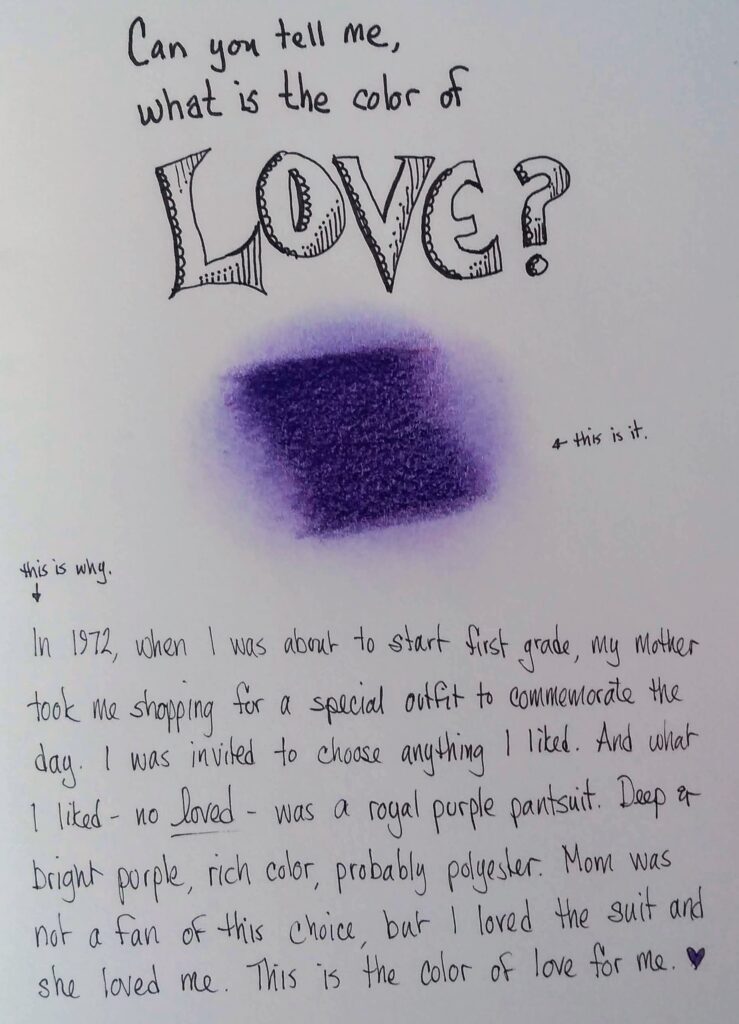 Can you tell me,
what is the color of
LOVE?
← this is it.
this is why.
↓
In 1972, when I was about to start first grade, my mother
took me shopping for a special outfit to commemorate the
day. I was invited to choose anything I liked. And what
I liked - no loved - was a royal purple pantsuit. Deep &
bright purple, rich color, probably polyester. Mom was
not a fan of this choice, but I loved the suit and
she loved me. This is the color of love for me. ♥